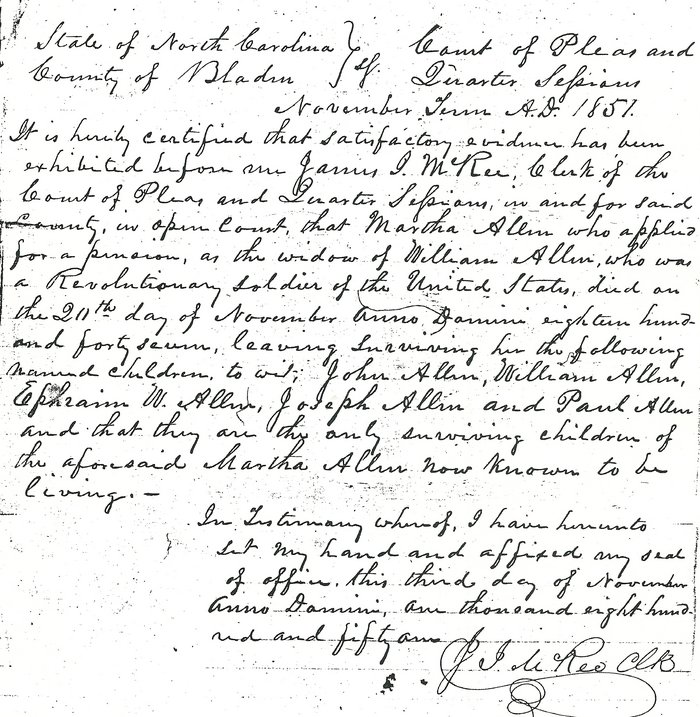 State of North Carolina } ss. Court of Pleas and
County of Bladen } Quarter Sessions
November Term A.D. 1851.
It is hereby certified that satisfactory evidence has been
exhibited before me James I. McKee, Clerk of the
Court of Pleas and Quarter Sessions, in and for said
County, in open Court, that Martha Allen who applied
for a pension, as the widow of William Allen, who was
a Revolutionary soldier of the United States, died on
the 20th day of November Anno Domini eighteen hund-
and forty seven, leaving surviving her the following
named children, to wit; John Allen, William Allen,
Ephraim W. Allen, Joseph Allen and Paul Allen
and that they are the only surviving children of
the aforesaid Martha Allen now known to be
living. —
In Testimony whereof, I have hereunto
set my hand and affixed my seal
of office, this third day of November
Anno Domini, one thousand eight hund-
red and fifty one
J. I. McKee Clk